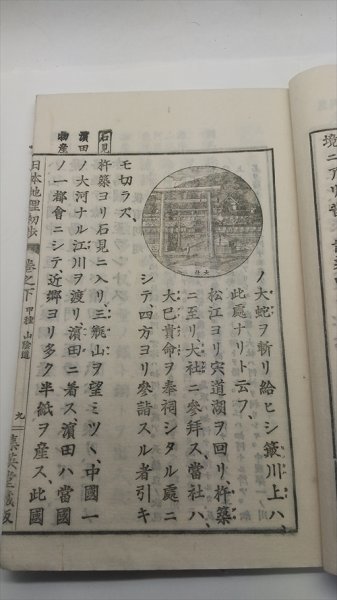 ノ大蛇ヲ斬リ給ヒシ簸川上ハ、
此處ナリト云フ、
松江ヨリ宍道湖ヲ回リ、杵築
ニ至リ、大社ニ參拜ス、當社ハ、
大己貴命ヲ奉祠シタル處ニ
シテ、四方ヨリ參詣スル者引キ
モ切ラズ、
大社
石見
杵築ヨリ石見ニ入リ、三瓶山ヲ望ミツヽ、中國一
濱田
ノ大河ナル江川ヲ渡リ、濱田ニ着ス、濱田ハ、當國
物産
ノ一都會ニシテ、近郷ヨリ多ク半紙ヲ産ス、此國
日本地理初歩 卷之下 甲種 山陰道 九 集英堂藏版